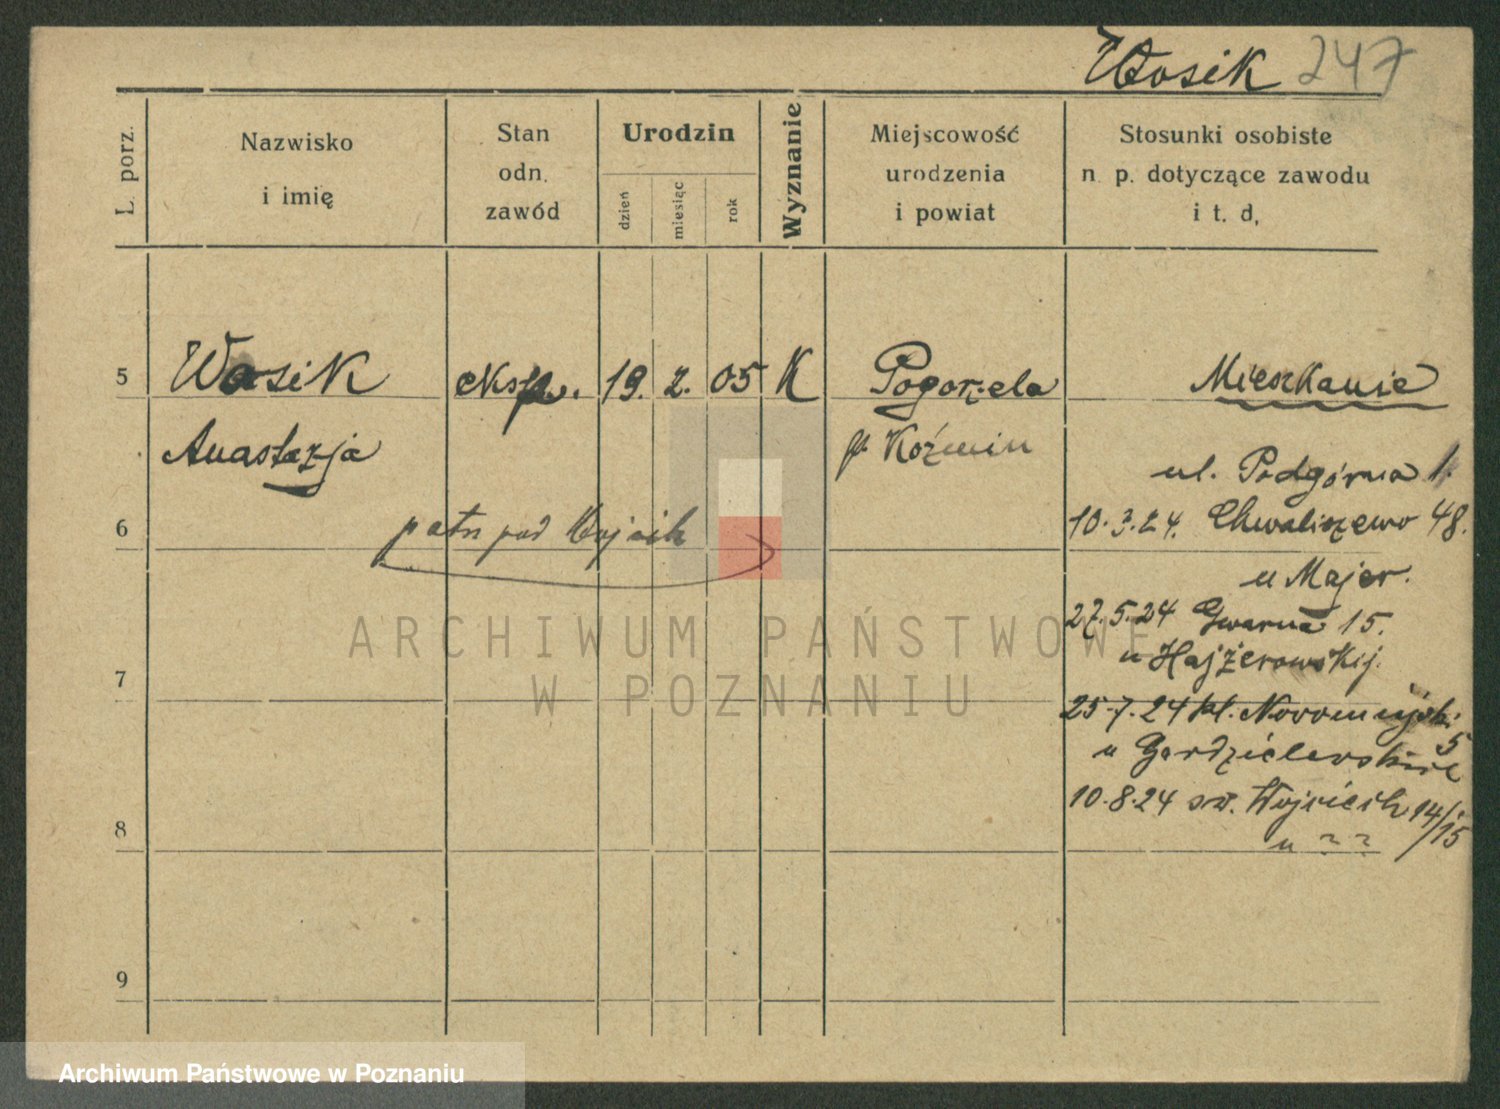 Wosik 247
L. porz.
Nazwisko
i imię
Stan
odn.
zawód
Urodzin
dzień
miesiąc
rok
Wyznanie
Miejscowość
urodzenia
i powiat
Stosunki osobiste
n. p. dotyczące zawodu
i t. d,
5 Wosik 19. 2. 05 K Pogorzela Mieszkanie
Anastazja p. Koźmin
ul. Podgórna 1.
6 patrz pod
10.3.24. Chwaliszewo 48.
u Majer.
27.5.24 Gwarna 15.
u Hajżerowskij.
7
25.7.24 pl. Nowomiejski
5
u
10.8.24 św. Wojciech 14/15
8
u ??
9
ARCHIWUM PAŃSTWOWE
W POZNANIU
Archiwum Państwowe w Poznaniu